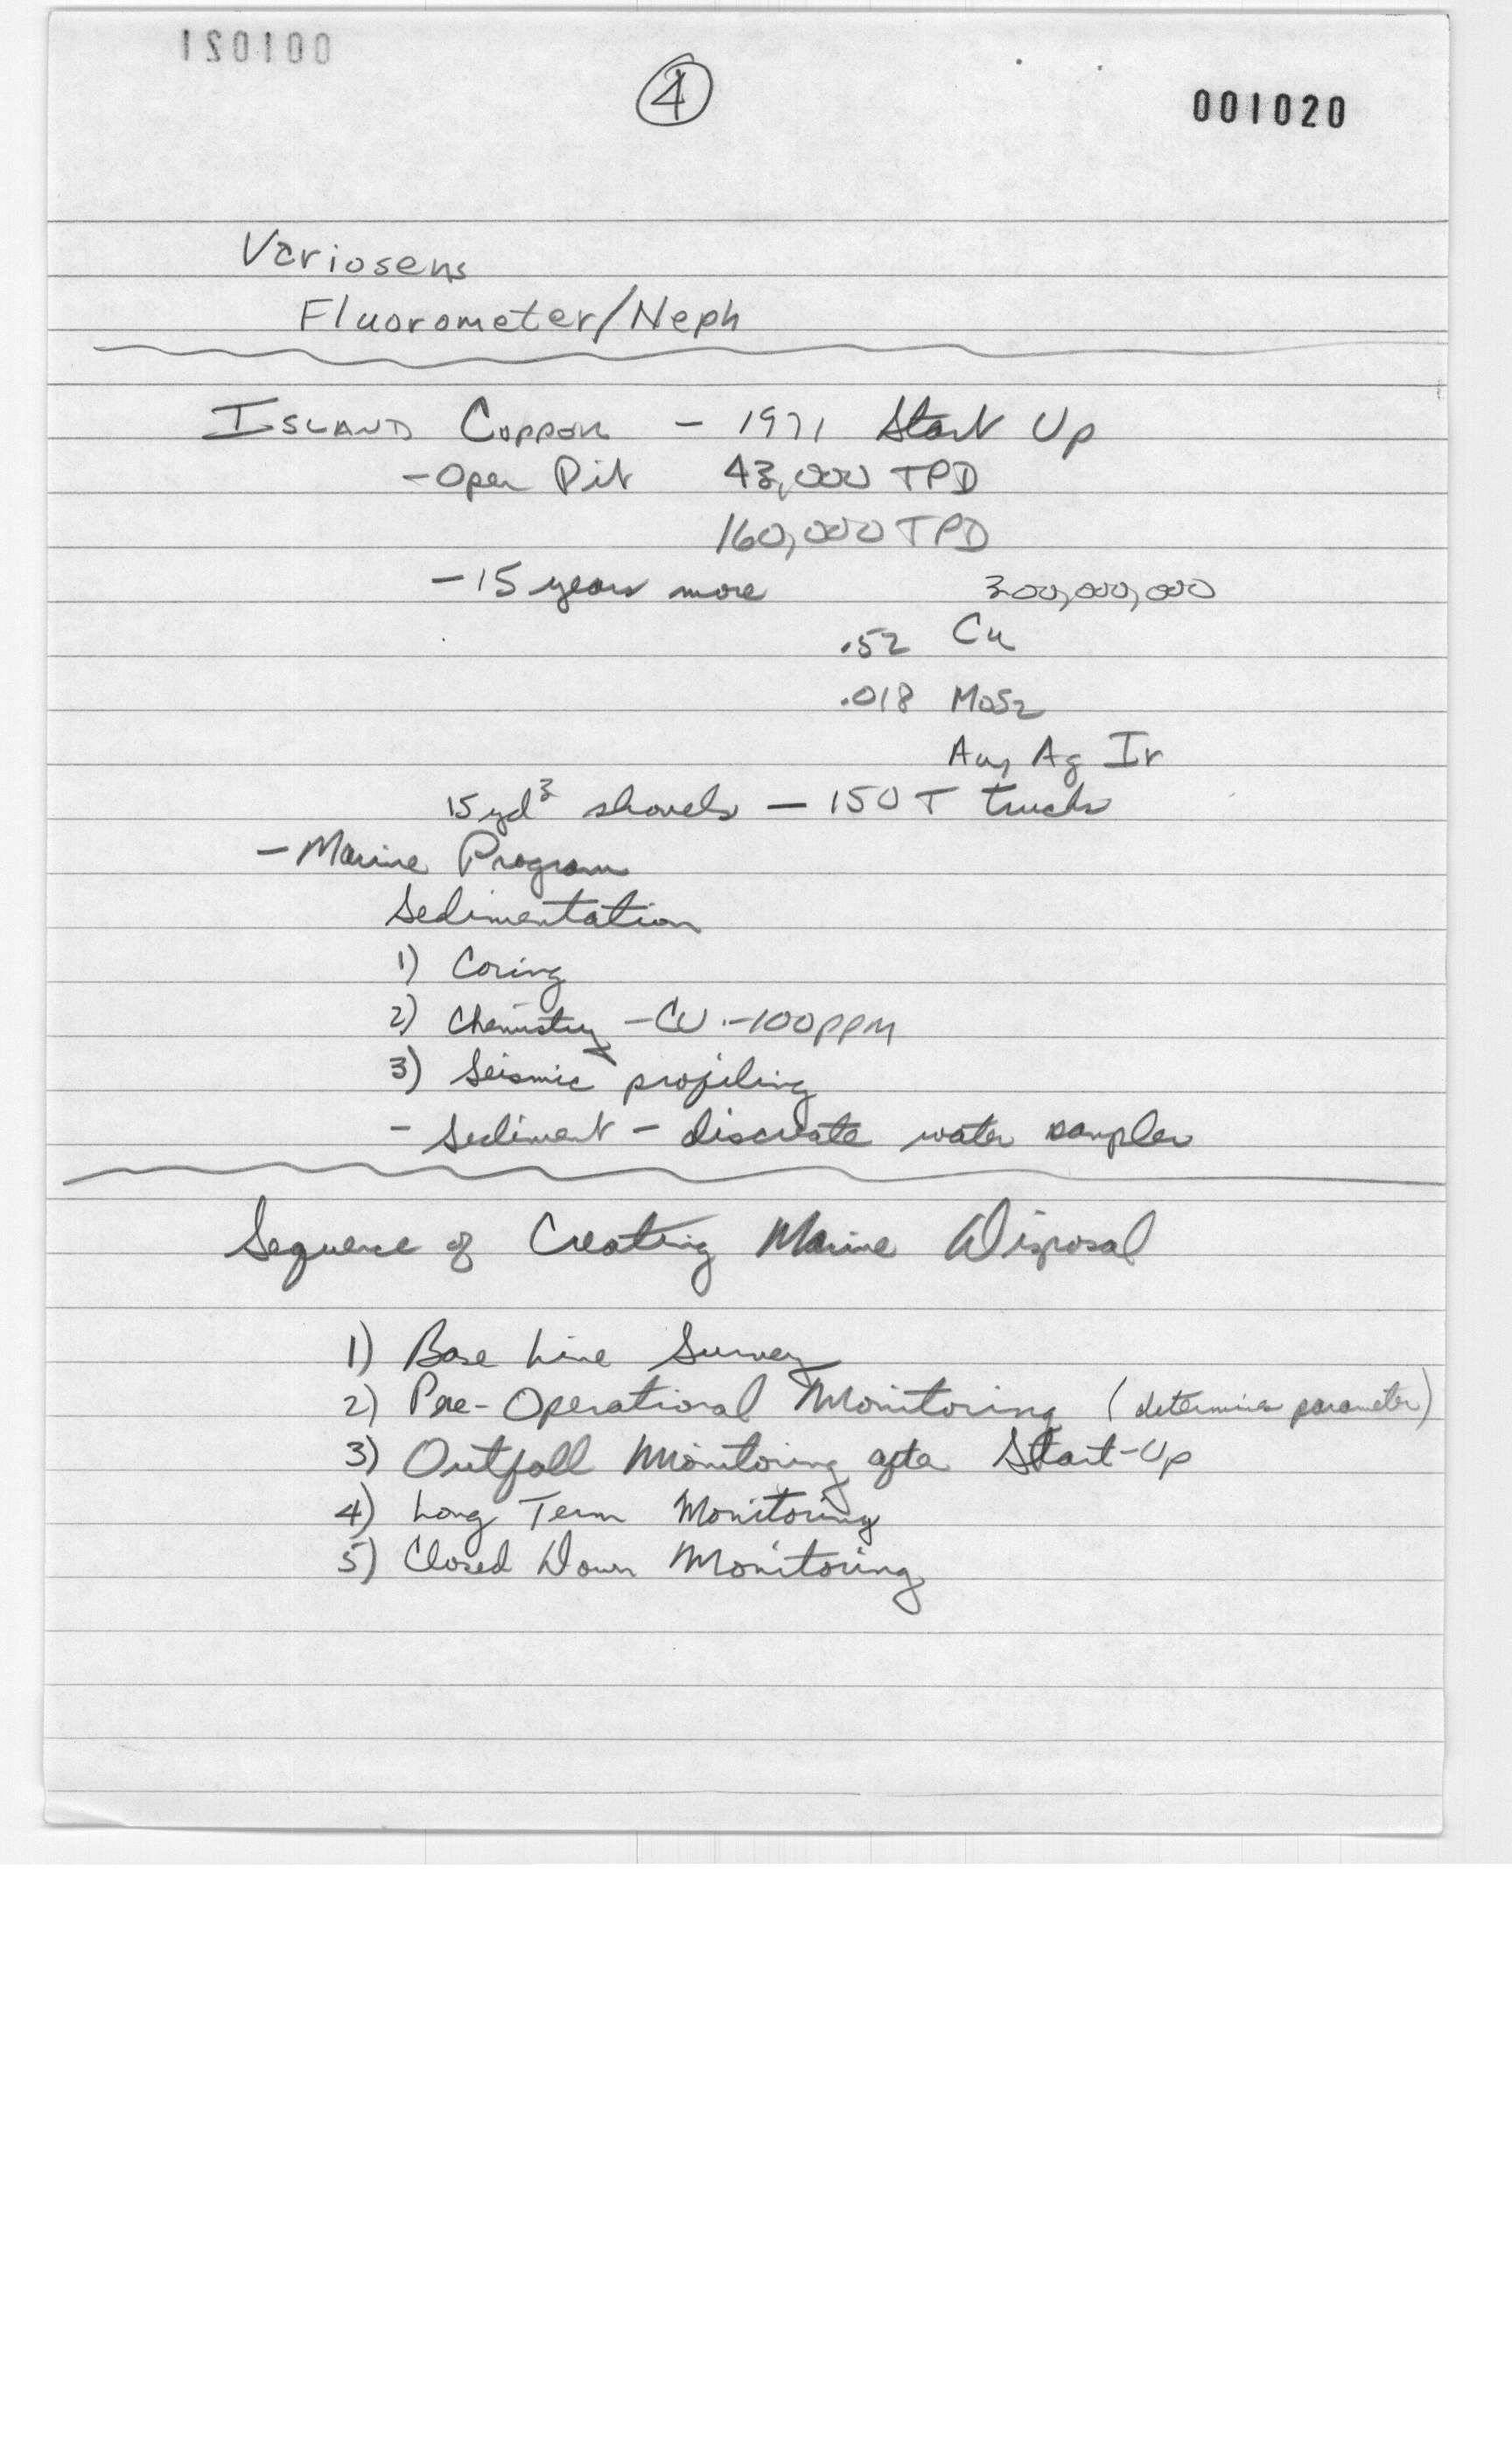 ④
001020
Variosens
Fluorometer/Neph
Island Copper - 1971 Start Up
- Open Pit 43,000 TPD
160,000 TPD
- 15 years more 300,000,000
.52 Cu
.018 MoS2
Au, Ag Ir
15 yd³ shovels - 150 T trucks
- Marine Program
Sedimentation
1) Coring
2) Chemistry - Cu - 100 ppm
3) Seismic profiling
- Sediment - discrete water samples
Sequence of Creating Marine Disposal
1) Base Line Survey
2) Pre-Operational Monitoring (determines parameter)
3) Outfall Monitoring after Start-Up
4) Long Term Monitoring
5) Closed Down Monitoring